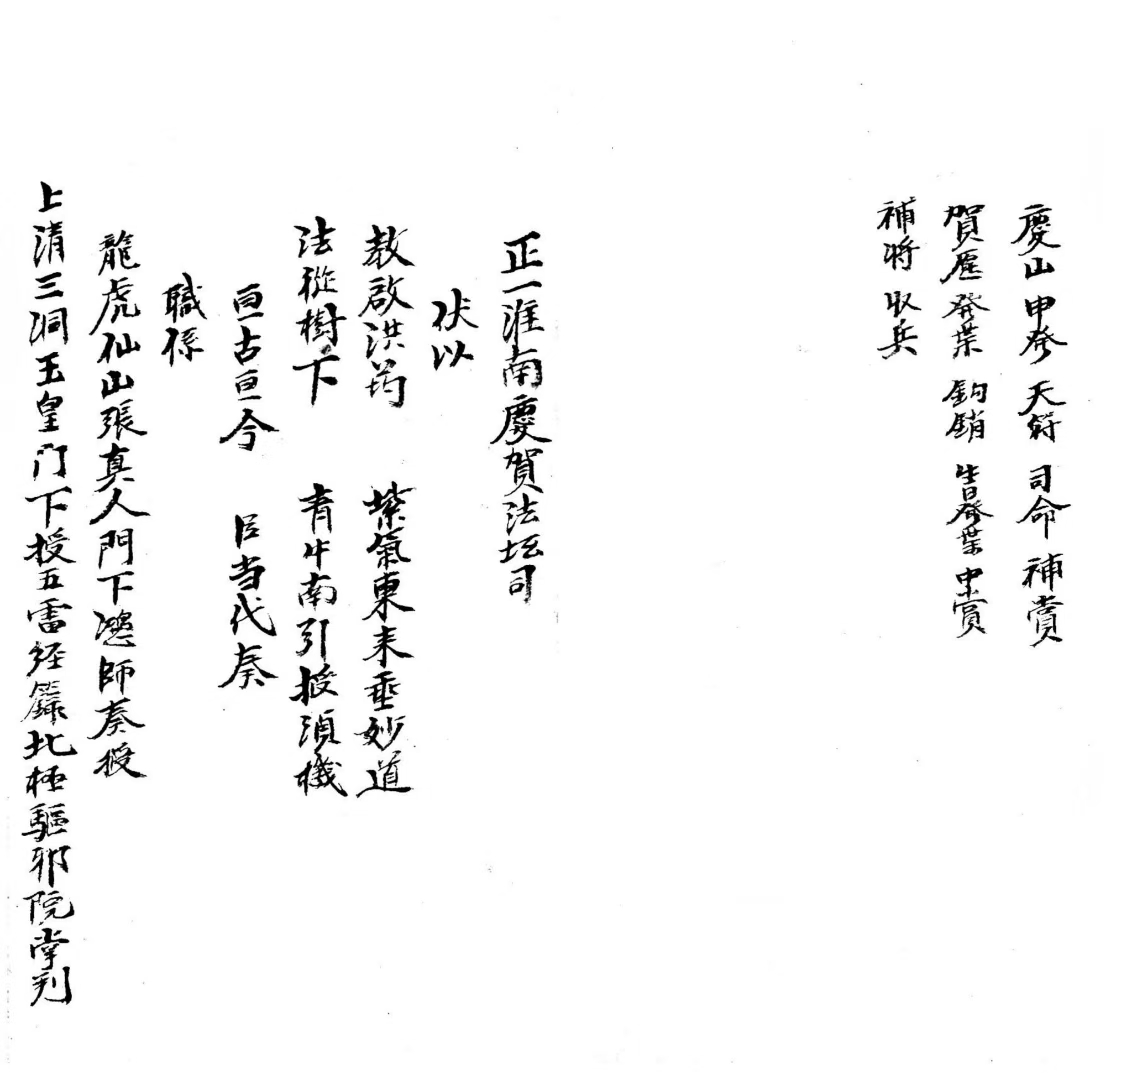 慶山 申発 天符 司命 補賞
賀歷發葉 鈎銷 昔發葉 申賞
補將 收兵
正一淮南慶賀法坛司
伏以
教啟洪筠 紫氣東来垂妙道
法從樹下 青牛南引授須機
亘古亘今 臣当代奏
職係
龍虎仙山張真人門下 師奏授
上清三洞玉皇门下授五雷经籙北極驅邪院掌判